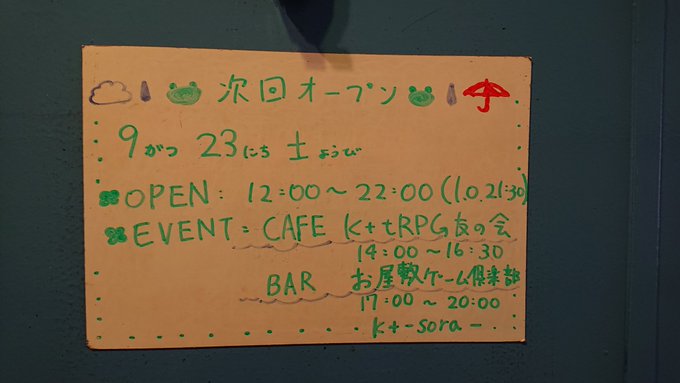 次回オープン
9がつ 23にち 土ようび
OPEN: 12:00～22:00(l.o.21:30)
EVENT: CAFE k+tRPG友の会
14:00～16:30
BAR お屋敷ゲーム倶楽部
17:00～20:00
k+-sora-